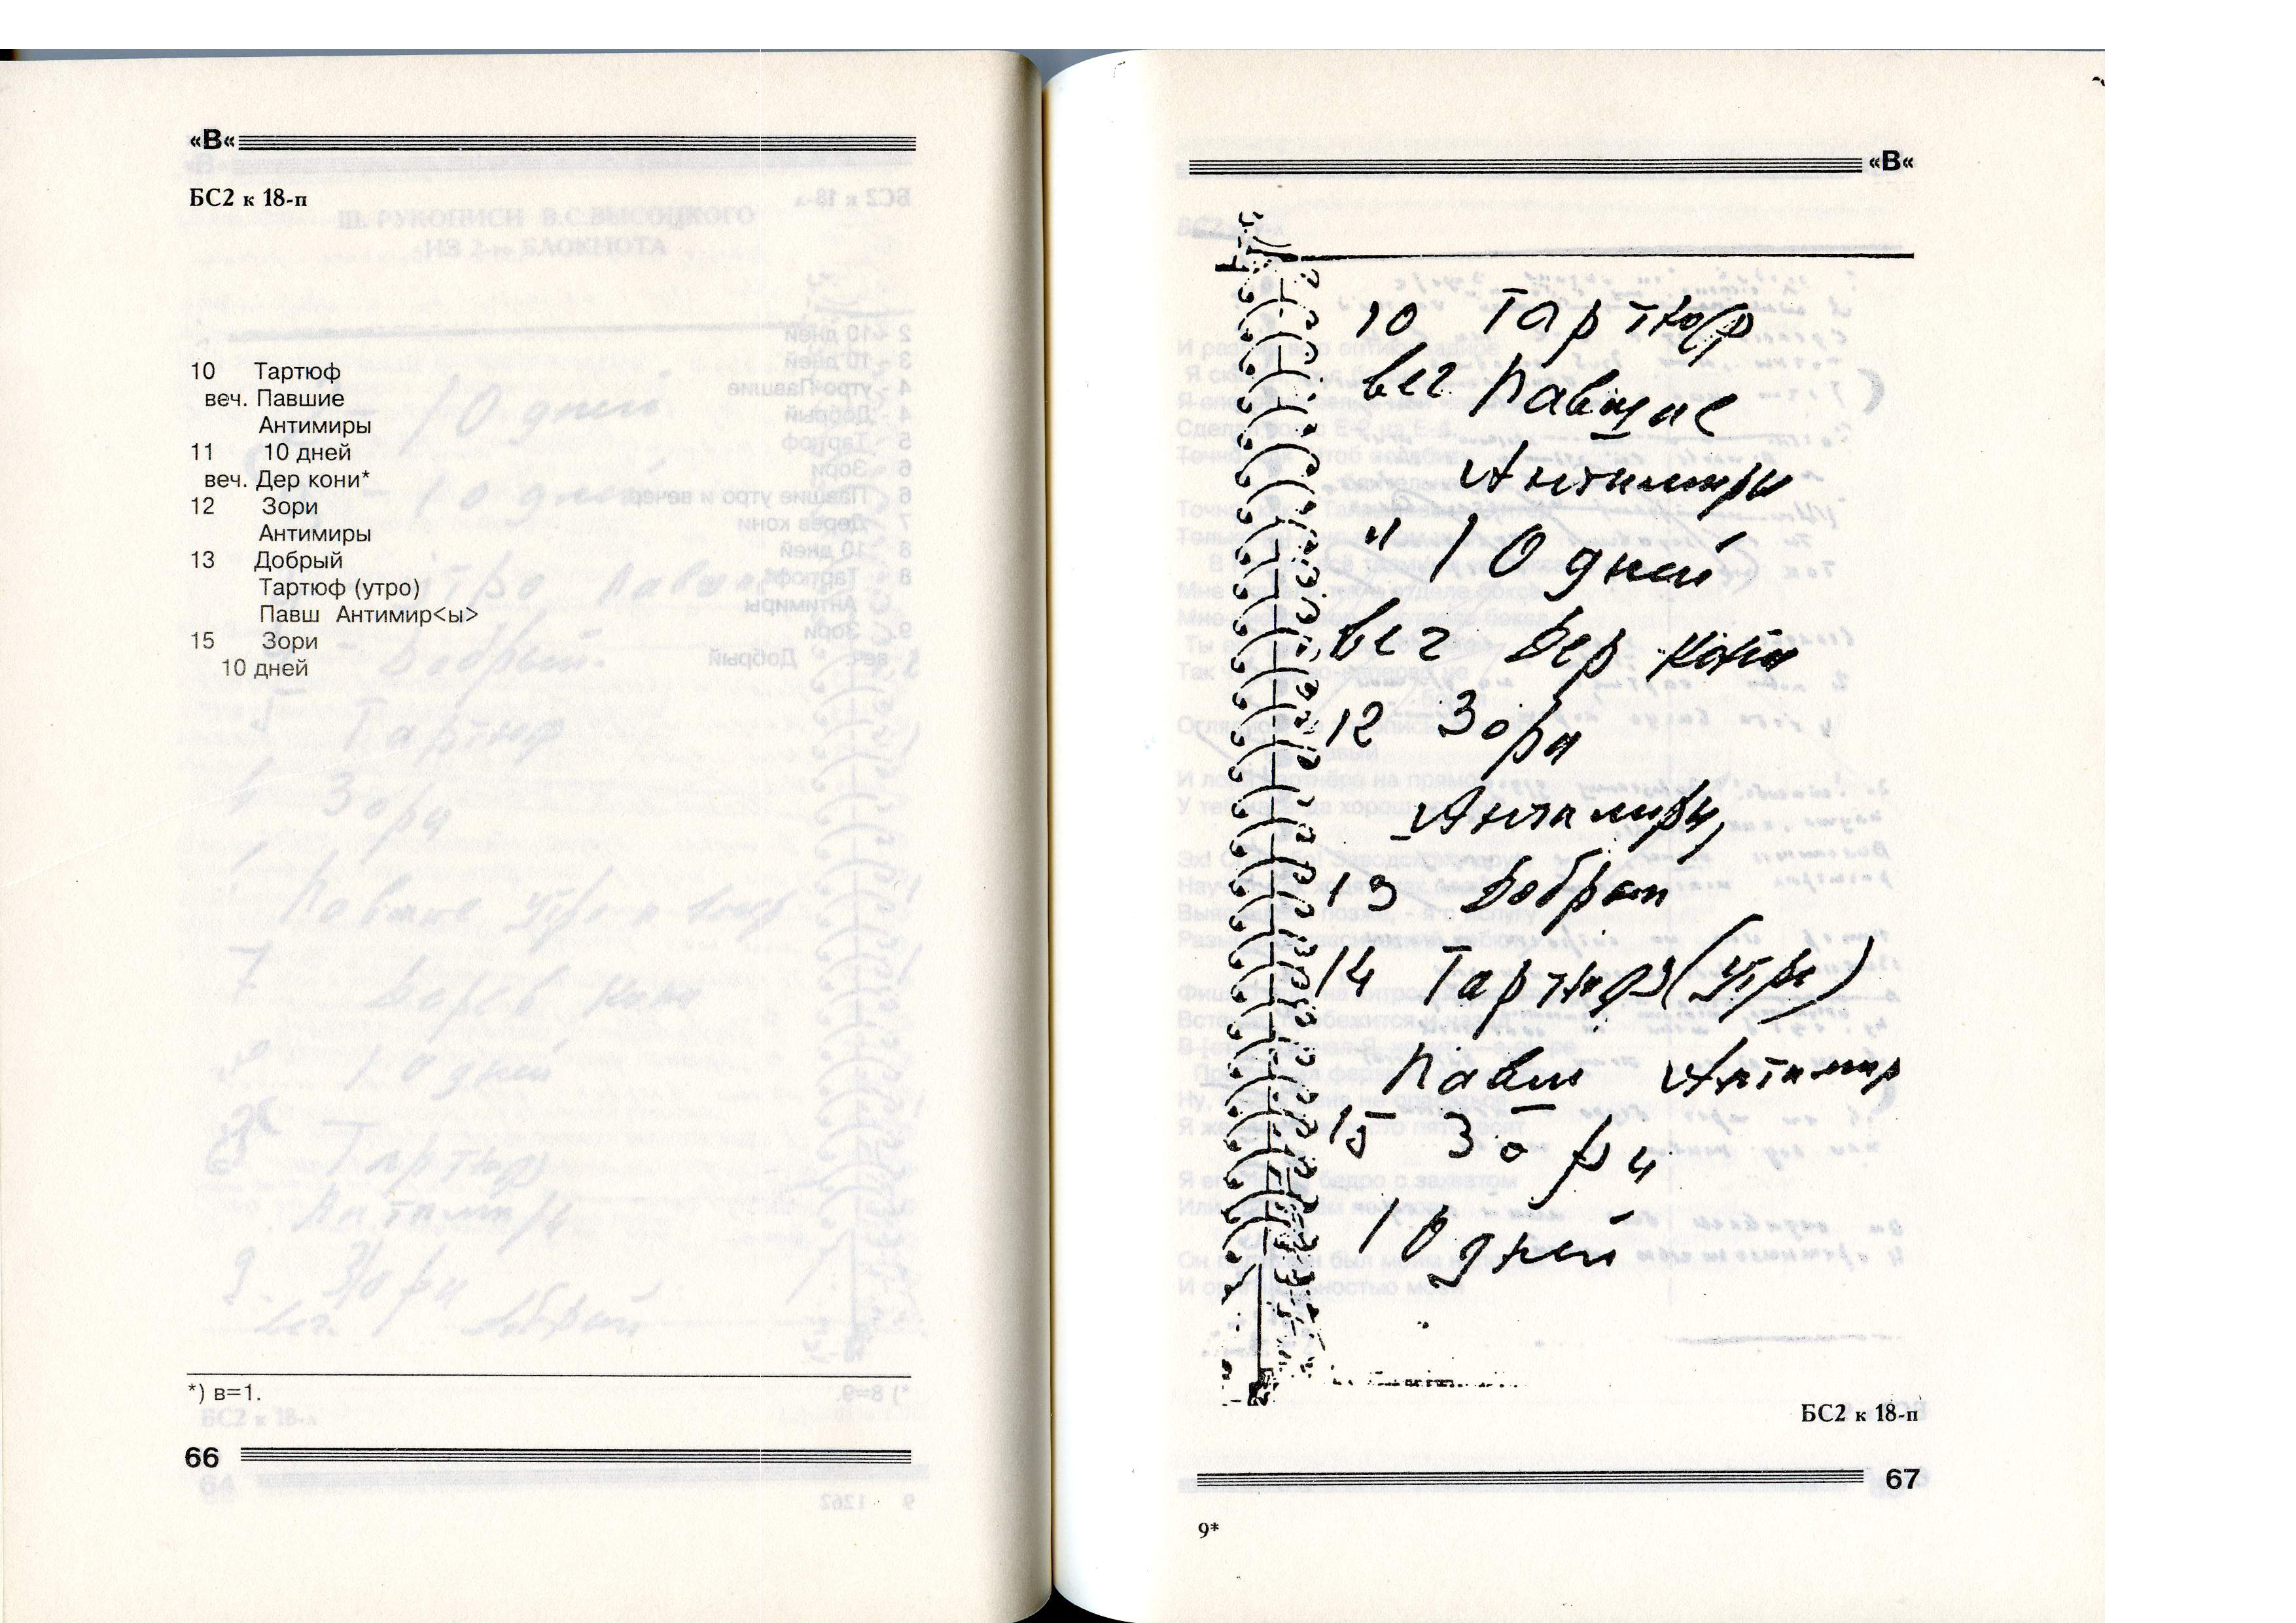 «В«
БС2 к 18-п
10 Тартюф
веч. Павшие
Антимиры
11 10 дней
веч. Дер кони*
12 Зори
Антимиры
13 Добрый
Тартюф (утро)
Павш Антимир<ы>
15 Зори
10 дней
*) в=1.
66
«В«
10 Тартюф
веч Павшие
Антимиры
11 10 дней
веч Дер кони
12 Зори
Антимиры
13 Добрый
14 Тартюф (утро)
Павш Антимир
15 Зори
10 дней
БС2 к 18-п
67
9*